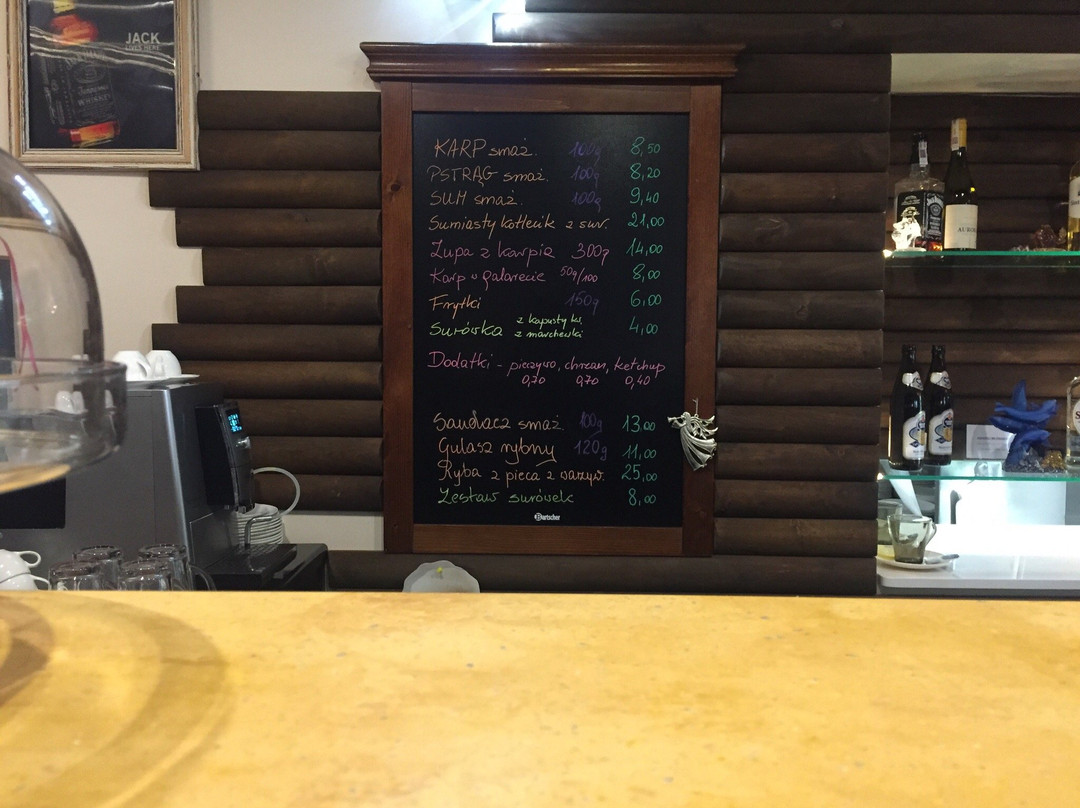 JACK
LIVES HERE
KARP smaż. 100g 8,50
PSTRĄG smaż. 100g 8,20
SUM smaż. 100g 9,40
Sumiasty kotlecik z sur. 21,00
Zupa z karpia 300g 14,00
Karp w galarecie 50g/100 8,00
Frytki 150g 6,00
Surówka z kapusty kw. 4,00
z marchewki
Dodatki - pieczywo, chrzan, ketchup
0,70 0,70 0,40
Sandacz smaż. 100g 13,00
Gulasz rybny 120g 11,00
Ryba z pieca z warzyw. 25,00
Zestaw surówek 8,00
Bartscher